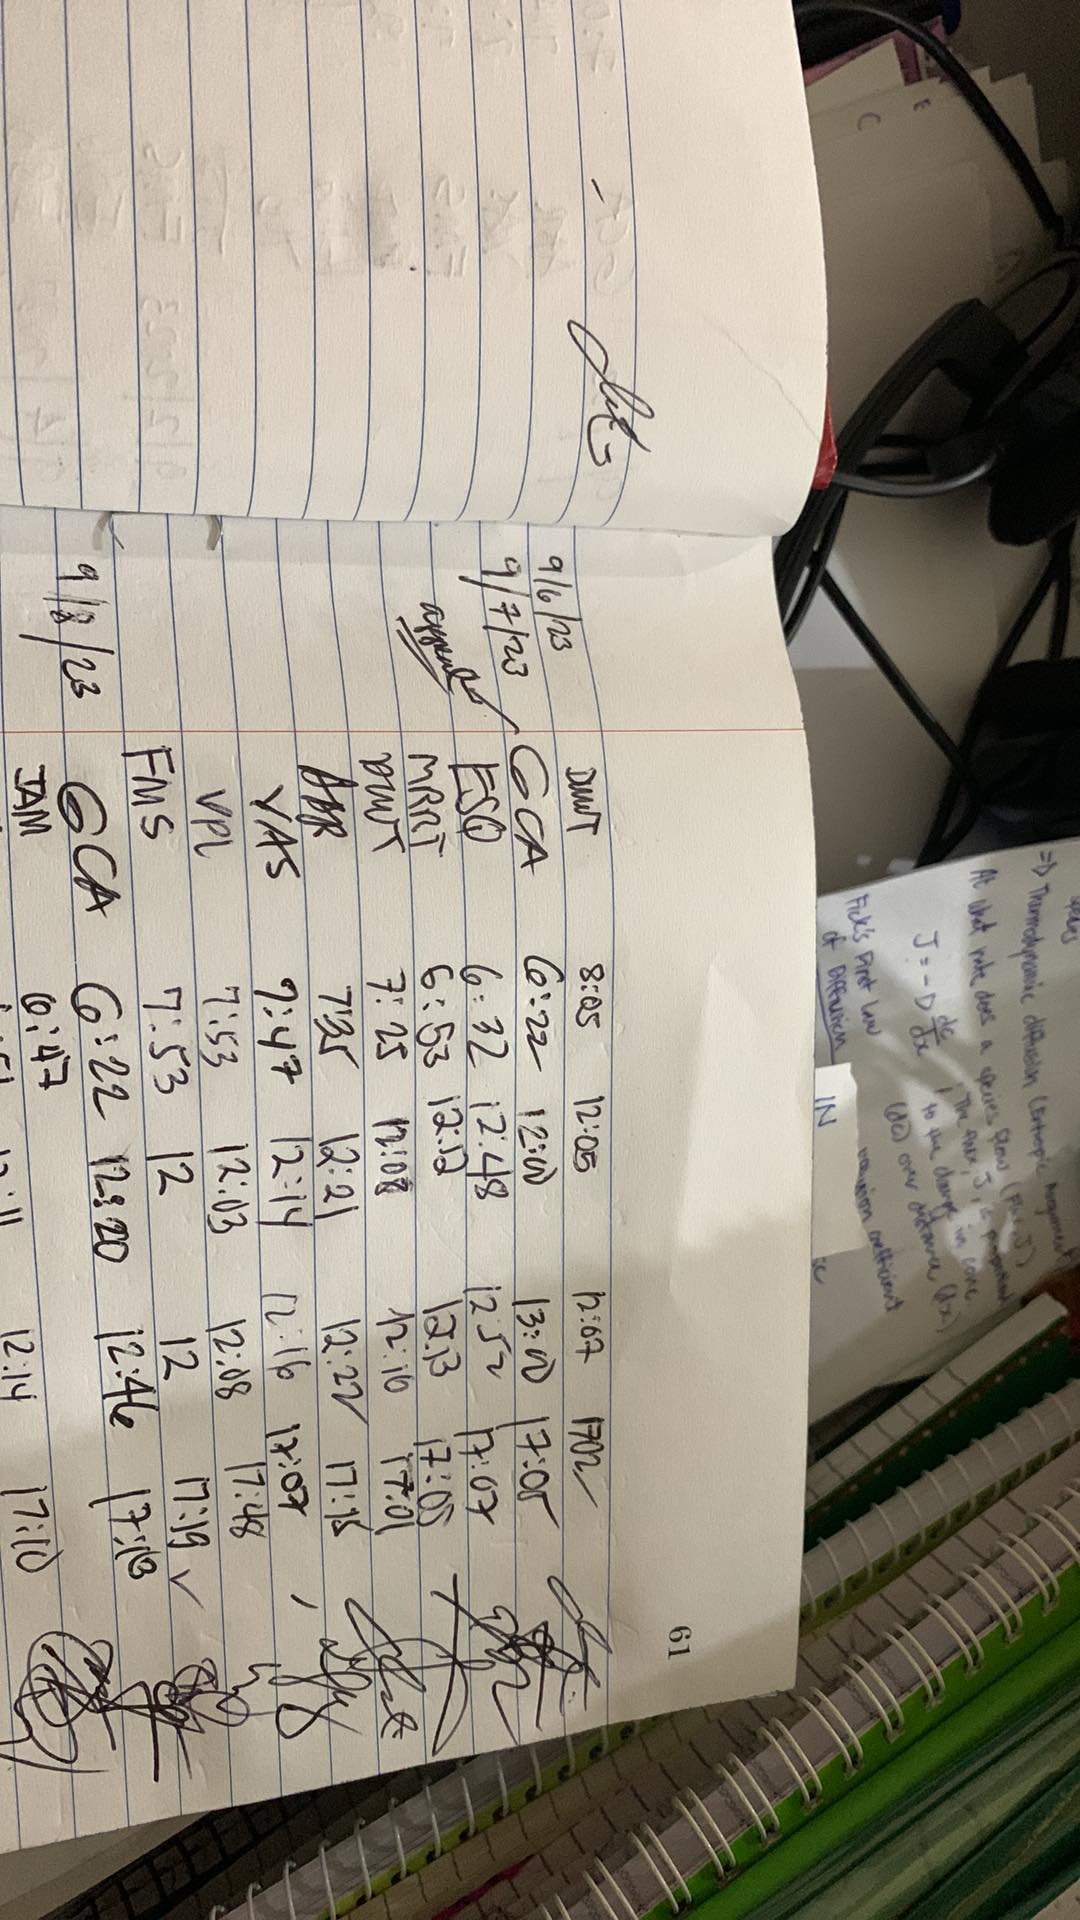 61
9/6/23 DWT 8:05 12:05 12:07 1702
9/7/23 GCA 6:22 12:00 13:00 17:05
ESQ 6:32 12:48 12:52 17:07
MRRT 6:53 12:12 12:13 17:05
DWT 7:25 12:08 12:10 17:01
7:35 12:21 12:22 17:15
YAS 7:47 12:14 12:16 17:07
VPL 7:53 12:03 12:08 17:48
FMS 7:53 12 12 17:19
9/8/23 GCA 6:22 12:20 12:46 17:13
JAM 6:47 12:11 12:14 17:10
E
C
=> Thermodynamic diffusion (entropic argument)
At what rate does a species flow (flux J)
J = - D dc/dx , the flux, J, is proportional
to the change in conc
Fick's First Law (dc) over distance (dx)
of Diffusion
coefficient
IN